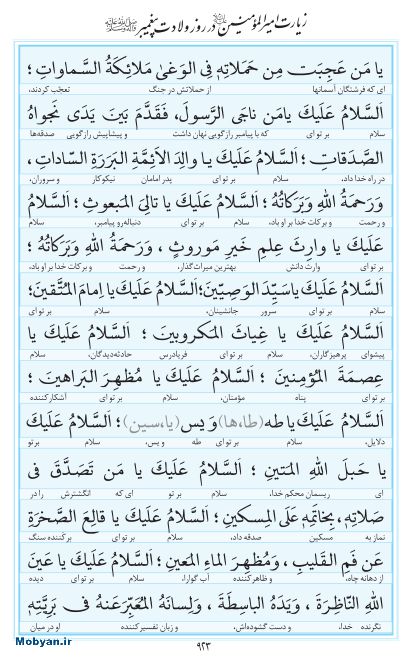 زیارت امیرالمؤمنین در روز ولادت پیغمبر
یا مَن عَجِبَت مِن حَمَلاتِهِ فِی الوَغیٰ مَلائِکَةُ السَّماواتِ ؛
ای که فرشتگان آسمانها از حملاتش در جنگ تعجّب کردند،
اَلسَّلامُ عَلَیكَ یامَن ناجَی الرَّسولَ، فَقَدَّمَ بَینَ یَدَی نَجواهُ
سلام بر تو ای که با پیامبر رازگویی نهان داشت و پیشاپیش رازگویی صدقه‌ها
الصَّدَقاتِ ؛ اَلسَّلامُ عَلَیكَ یا والِدَ الاَئِمَّةِ البَرَرَةِ السّاداتِ،
در راه خدا داد، سلام بر تو ای پدر امامان نیکوکار و سروران،
وَرَحمَةُ اللهِ وَبَرَکاتُهُ ؛ اَلسَّلامُ عَلَیكَ یا تالِیَ المَبعوثِ ؛ اَلسَّلامُ
و رحمت و برکات خدا بر او باد، سلام بر تو ای دنباله‌رو پیامبر، سلام
عَلَیكَ یا وارِثَ عِلمِ خَیرِ مَوروثٍ ، وَرَحمَةُ اللهِ وَبَرَکاتُهُ ؛
بر تو ای وارث دانش بهترین میراث‌گذار، و رحمت و برکات خدا بر او باد،
اَلسَّلامُ عَلَیكَ یا سَیِّدَ الوَصِیّینَ؛ اَلسَّلامُ عَلَیكَ یا اِمامَ المُتَّقینَ؛
سلام بر تو ای سرور جانشینان، سلام بر تو ای
اَلسَّلامُ عَلَیكَ یا غِیاثَ المَکروبینَ ؛ اَلسَّلامُ عَلَیكَ یا
پیشوای پرهیزگاران، سلام بر تو ای فریادرس حادثه‌دیدگان، سلام
عِصمَةَ المُؤمِنینَ ؛ اَلسَّلامُ عَلَیكَ یا مُظهِرَ البَراهینِ ؛
بر تو ای پناه مؤمنان، سلام بر تو ای آشکارکننده
اَلسَّلامُ عَلَیكَ یا طه (طا،ها) وَ یس (یا،سین) ؛ اَلسَّلامُ عَلَیكَ
دلایل، سلام بر تو ای طه و یس، سلام بر تو
یا حَبلَ اللهِ المَتینَ ؛ اَلسَّلامُ عَلَیكَ یا مَن تَصَدَّقَ فی
ای ریسمان محکم خدا، سلام بر تو ای که انگشترش را در
صَلاتِهِ، بِخاتَمِهِ عَلَی المِسکینِ ؛ اَلسَّلامُ عَلَیكَ یا قالِعَ الصَّخرَةِ
نماز به مسکین صدقه داد، سلام بر تو ای برکننده سنگ
عَن فَمِ القَلیبِ ، وَمُظهِرَ الماءِ المَعینِ ؛ اَلسَّلامُ عَلَیكَ یا عَینَ
از دهانه چاه، و ظاهر کننده آب گوارا، سلام بر تو ای دیده
اللهِ النّاظِرَةَ ، وَیَدَهُ الباسِطَةَ ، وَلِسانَهُ المُعَبِّرَعَنهُ فی بَرِیَّتِهِ
نگرنده خدا، و دست گشوده‌اش، و زبان تفسیرکننده او در میان
Mobyan.ir
٩٢٣